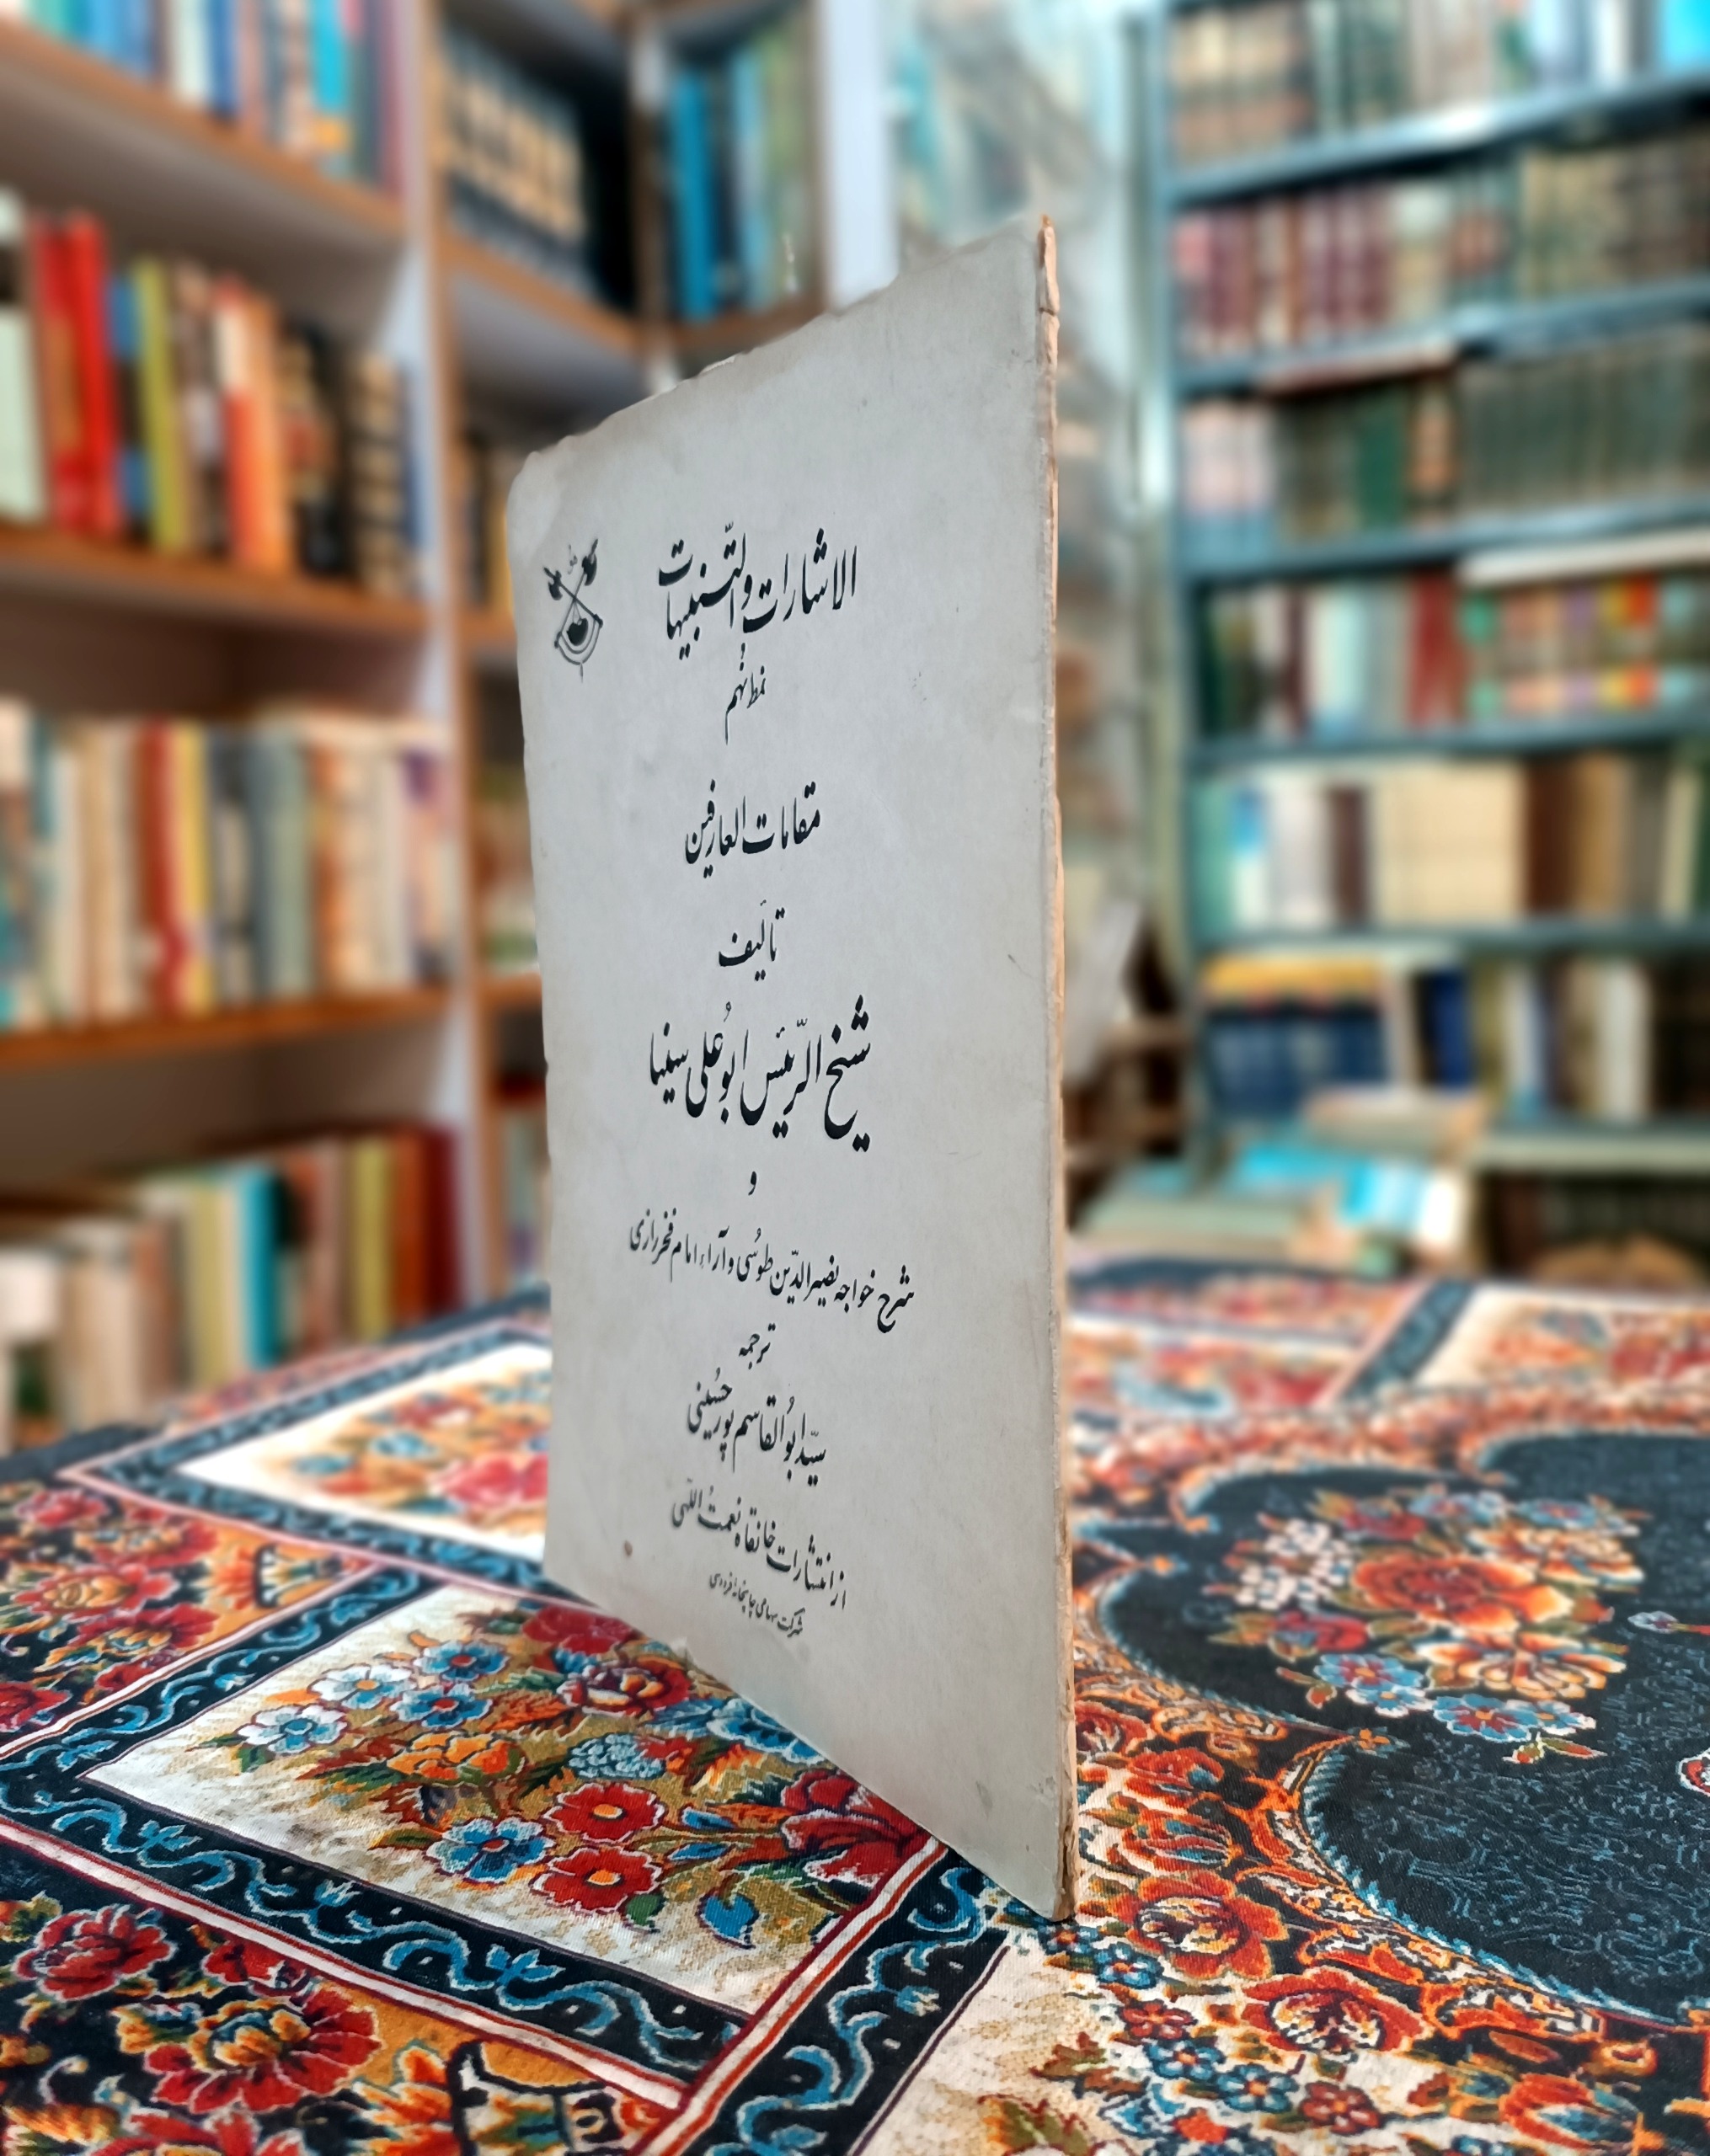 الاشارات والتّنبیهات
نمط نُهم
مقامات العارفین
تألیف
شیخ الرّئیس ابوُعلی سینا
و
شرح خواجه نصیرالدّین طوُسی و آراء امام فخر رازی
ترجمه
سیّد ابوُالقاسم پورحسُینی
از انتشارات خانقاه نعمتُ اللّهی
شرکت سهامی چاپخانهٔ فردوسی